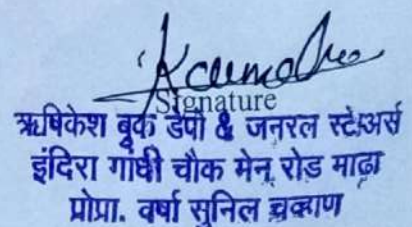 Signature
ऋषिकेश बूक डेपो & जनरल स्टोअर्स
इंदिरा गांधी चौक मेन रोड माढा
प्रोप्रा. वर्षा सुनिल चव्हाण